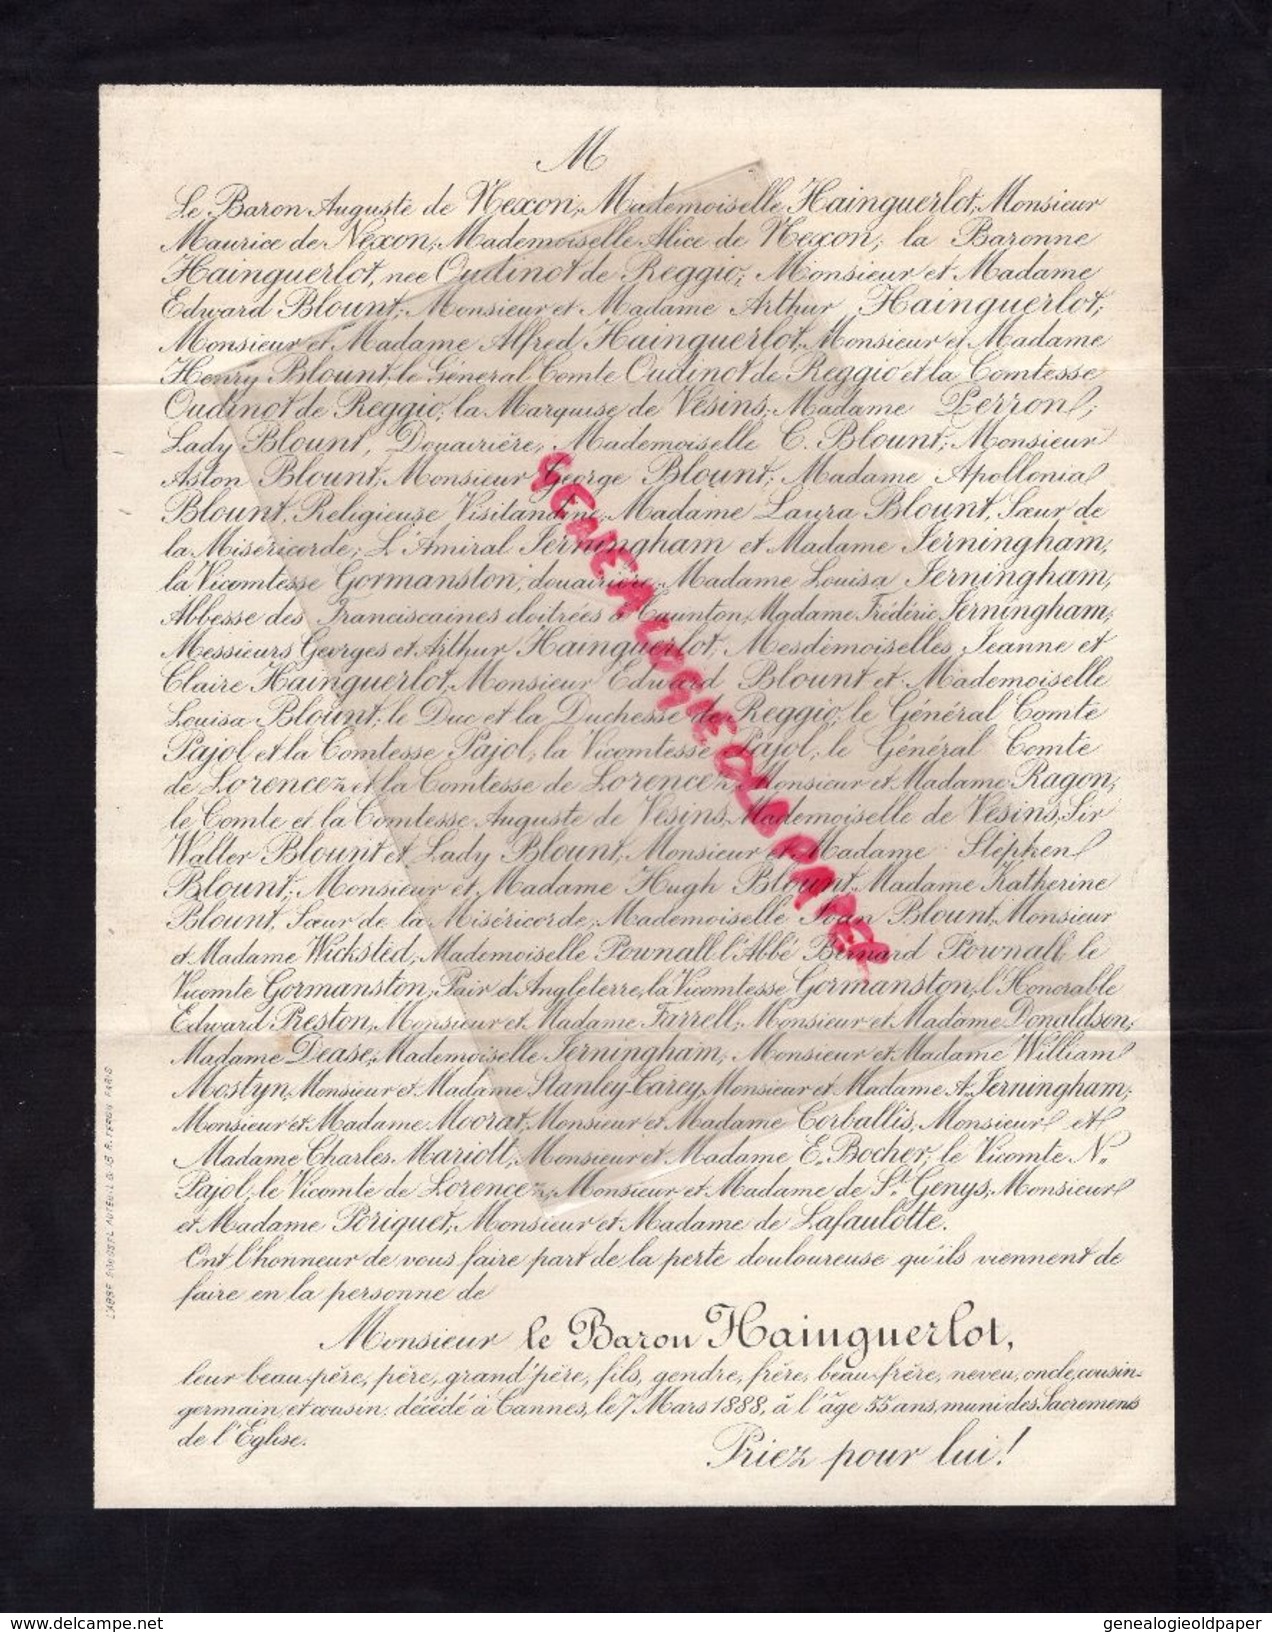 M
Le Baron Auguste de Nexon, Mademoiselle Hainguerlot, Monsieur
Maurice de Nexon, Mademoiselle Alice de Nexon, la Baronne
Hainguerlot, née Oudinot de Reggio, Monsieur et Madame
Edward Blount, Monsieur et Madame Arthur Hainguerlot,
Monsieur et Madame Alfred Hainguerlot, Monsieur et Madame
Henry Blount, le Général Comte Oudinot de Reggio et la Comtesse
Oudinot de Reggio, la Marquise de Vésins, Madame Perron,
Lady Blount, Douairière, Mademoiselle C. Blount, Monsieur
Aston Blount, Monsieur George Blount, Madame Apollonia
Blount, Religieuse Visitandine, Madame Laura Blount, Sœur de
la Miséricorde, L'Amiral Jerningham et Madame Jerningham,
la Vicomtesse Gormanston, douairière, Madame Louisa Jerningham,
Abbesse des Franciscaines cloitrées à Taunton, Madame Frédéric Jerningham,
Messieurs Georges et Arthur Hainguerlot, Mesdemoiselles Jeanne et
Claire Hainguerlot, Monsieur Edward Blount et Mademoiselle
Louisa Blount, le Duc et la Duchesse de Reggio, le Général Comte
Pajol et la Comtesse Pajol, la Vicomtesse Pajol, le Général Comte
de Lorencez et la Comtesse de Lorencez, Monsieur et Madame Ragon,
le Comte et la Comtesse Auguste de Vésins, Mademoiselle de Vésins, Sir
Walter Blount et Lady Blount, Monsieur et Madame Stephen
Blount, Monsieur et Madame Hugh Blount, Madame Katherine
Blount, Sœur de la Miséricorde, Mademoiselle Joan Blount, Monsieur
et Madame Wicksted, Mademoiselle Pownall, l'Abbé Bernard Pownall, le
Vicomte Gormanston, Pair d'Angleterre, la Vicomtesse Gormanston, l'Honorable
Edward Preston, Monsieur et Madame Farrell, Monsieur et Madame Donaldson,
Madame Dease, Mademoiselle Jerningham, Monsieur et Madame William
Mostyn, Monsieur et Madame Stanley-Carey, Monsieur et Madame A. Jerningham,
Monsieur et Madame Moorat, Monsieur et Madame Corballis, Monsieur et
Madame Charles Mariott, Monsieur et Madame E. Bocher, le Vicomte N.
Pajol, le Vicomte de Lorencez, Monsieur et Madame de St. Genys, Monsieur
et Madame Poriquet, Monsieur et Madame de Lafaulotte.
Ont l'honneur de vous faire part de la perte douloureuse qu'ils viennent de
faire en la personne de
Monsieur le Baron Hainguerlot,
leur beau-père, père, grand'père, fils, gendre, frère, beau-frère, neveu, oncle, cousin-
germain, et cousin, décédé à Cannes, le 7 Mars 1888, à l'âge 55 ans, muni des Sacremens
de l'Église.
Priez pour lui!
GENEALOGIEOLDPAPER
genealogieoldpaper